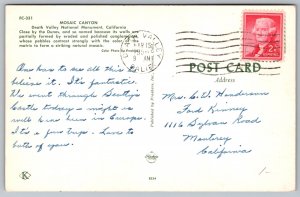 PC-331
MOSAIC CANYON
Death Valley National Monument, California
Close by the Dunes, and so named because its walls are
partially formed by waterd and polished conglomerate
whose pebbles contrast strongly with the color of the
matrix to form a striking natural mosaic.
Color Photo by
One has to see all this to
believe it. It's fantastic.
We went through Scotty's
Castle today - might as
well have been in Europe.
It's a fun trip - Love to
both of you.
DEATH VALLEY
MAR 15
9 AM
CALIF.
2¢
POST CARD
Address
Mrs. C. W. Henderson
Ford Kenney
1116 Sylvan Road
Monterey
California
K
8334
1-